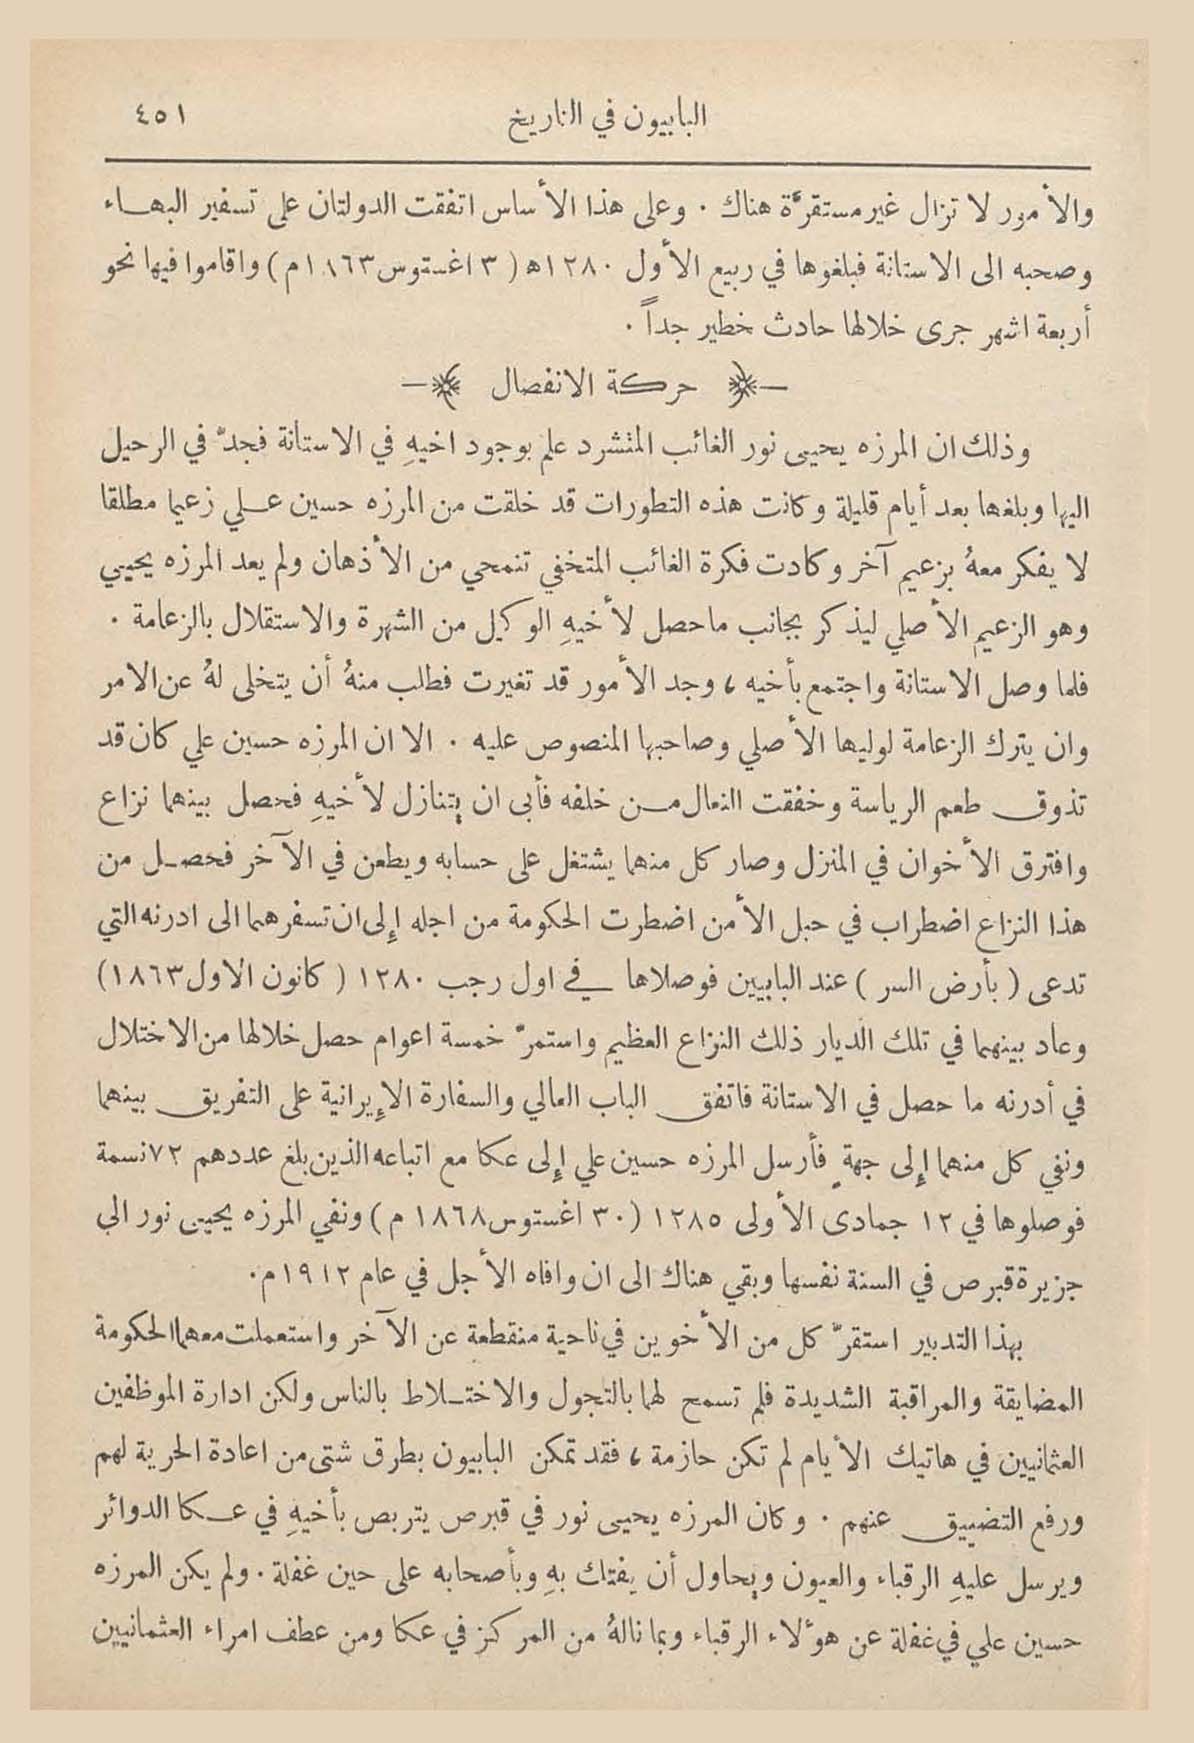 البابيون في التاريخ ٤٥١
والأمور لا تزال غير مستقرّة هناك . وعلى هذا الأساس اتفقت الدولتان على تسفير البهاء
وصحبه الى الاستانة فبلغوها في ربيع الأول ١٢٨٠ه (٣ اغستوس ١٨٦٣م) واقاموا فيها نحو
أربعة اشهر جرى خلالها حادث خطير جداً .
حركة الانفصال
وذلك ان المرزه يحيى نور الغائب المتشرد علم بوجود اخيهِ في الاستانة فجدّ في الرحيل
اليها وبلغها بعد أيام قليلة وكانت هذه التطورات قد خلقت من المرزه حسين عــلي زعيما مطلقا
لا يفكر معهُ بزعيم آخر وكادت فكرة الغائب المتخفي تنمحي من الأذهان ولم يعد المرزه يحيي
وهو الزعيم الأصلي ليذكر بجانب ما حصل لأخيهِ الوكيل من الشهرة والاستقلال بالزعامة .
فلما وصل الاستانة واجتمع بأخيه ، وجد الأمور قد تغيرت فطلب منهُ أن يتخلى لهُ عن الامر
وان يترك الزعامة لوليها الأصلي وصاحبها المنصوص عليه . الا ان المرزه حسين علي كان قد
تذوق طعم الرياسة وخفقت النعال مــن خلفه فأبى ان يتنازل لأخيهِ فحصل بينهما نزاع
وافترق الأخوان في المنزل وصار كل منهما يشتغل على حسابه ويطعن في الآخر فحصــل من
هذا النزاع اضطراب في حبل الأمن اضطرت الحكومة من اجله إلى ان تسفرهما الى ادرنه التي
تدعى ( بأرض السر ) عند البابيين فوصلاها في اول رجب ١٢٨٠ ( كانون الاول ١٨٦٣)
وعاد بينهما في تلك الديار ذلك النزاع العظيم واستمرّ خمسة اعوام حصل خلالها من الاختلال
في أدرنه ما حصل في الاستانة فاتفق الباب العالي والسفارة الإيرانية على التفريق بينهما
ونفي كل منهما إلى جهةٍ فأرسل المرزه حسين علي إلى عكا مع اتباعه الذين بلغ عددهم ٧٢ نسمة
فوصلوها في ١٢ جمادى الأولى ١٢٨٥ (٣٠ اغستوس ١٨٦٨ م) ونفي المرزه يحيى نور الى
جزيرة قبرص في السنة نفسها وبقي هناك الى ان وافاه الأجل في عام ١٩١٢م.
بهذا التدبير استقرّ كل من الأخوين في ناحية منقطعة عن الآخر واستعملت معهما الحكومة
المضايقة والمراقبة الشديدة فلم تسمح لهما بالتجول والاختــلاط بالناس ولكن ادارة الموظفين
العثمانيين في هاتيك الأيام لم تكن حازمة ، فقد تمكن البابيون بطرق شتى من اعادة الحرية لهم
ورفع التضييق عنهم . وكان المرزه يحيى نور في قبرص يتربص بأخيهِ في عــكا الدوائر
ويرسل عليهِ الرقباء والعيون ويحاول أن يفتك بهِ وبأصحابه على حين غفلة . ولم يكن المرزه
حسين علي في غفلة عن هؤلاء الرقباء وبما نالهُ من المركز في عكا ومن عطف امراء العثمانيين